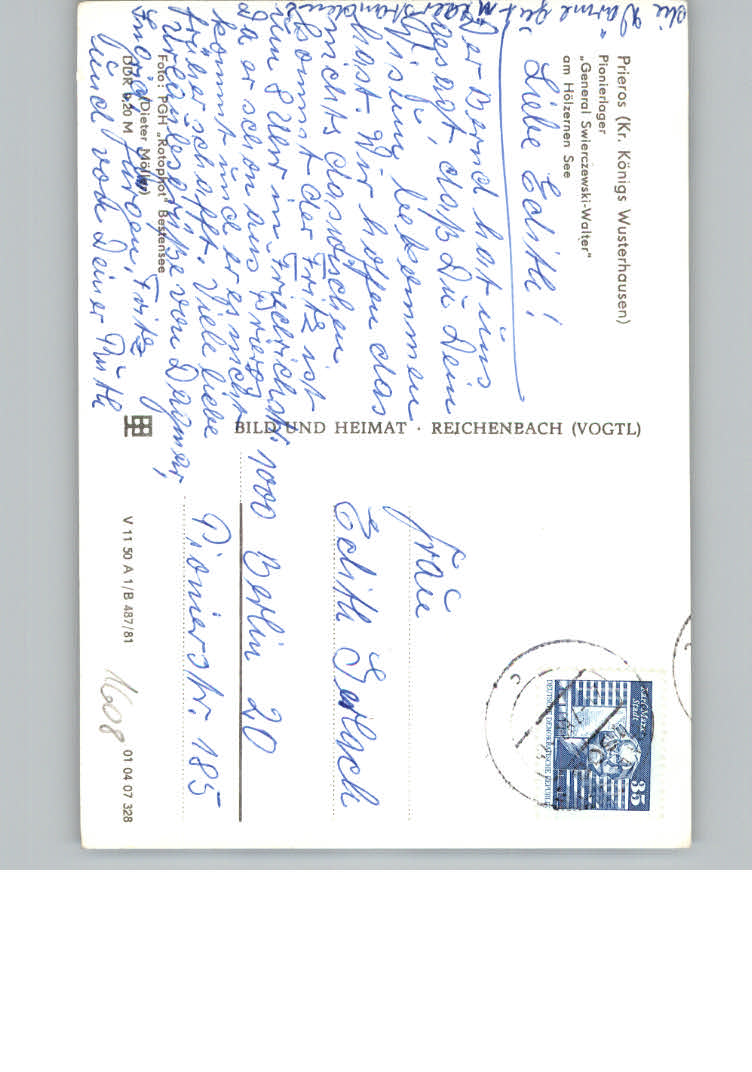 Prieros (Kr. Königs Wusterhausen)
Pionierlager
„General Swierczewski-Walter"
am Hölzernen See
Liebe Edith!
Der Bernd hat uns
gesagt, daß Du Dein
Visum bekommen
hast. Wir hoffen das
nichts dazwischen
kommt der Fritz ist
um 8 Uhr in Friedrichstr.
da er schon aus
kommt und er es nicht
früher schafft. Viele liebe
Urlaubsgrüße von Dagmar,
Jürgen, Fritz
und von Deiner Ruth
die Wärme gut
Foto: PGH „Rotophot" Bestensee
(Dieter Möller)
DDR 0,20 M
BILD UND HEIMAT · REICHENBACH (VOGTL)
V 11 50 A 1/B 487/81
01 04 07 328
1608
Frau
Edith Gerlach
1000 Berlin 20
Pionierstr. 185
Karl-Marx-
Stadt
35
DEUTSCHE DEMOKRATISCHE REPUBLIK